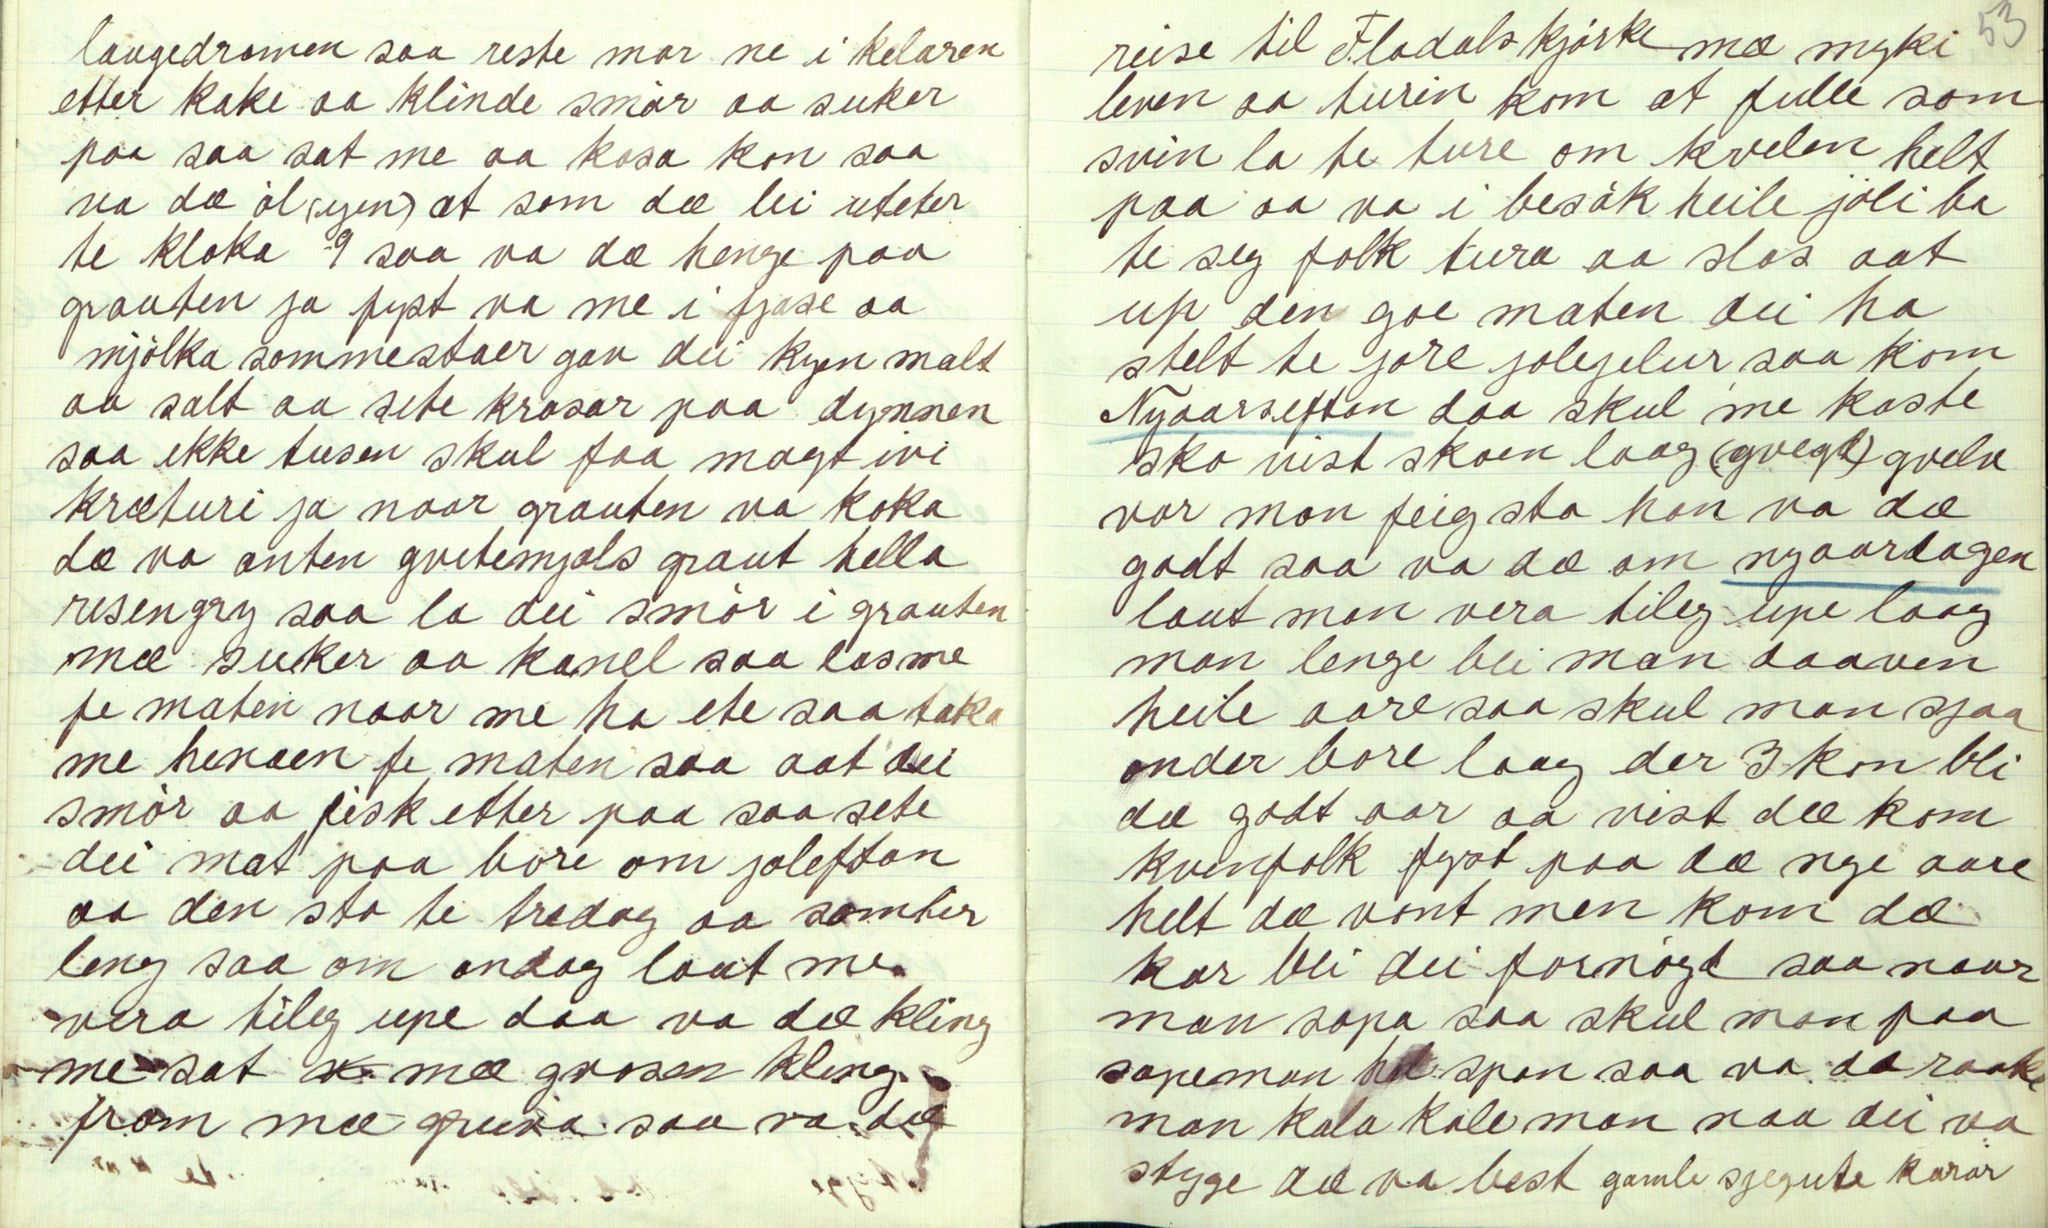 laugedromen saa reste mor ne i kelaren
etter kake aa klinde smör aa suker
paa saa sat me aa kosa kon saa
va dæ öl (igen) æt som dæ lei uteter
te kloka 9 saa va dæ henge paa
grauten ja fyst va me i fjose aa
mjölka sommestaer gav dei kyen malt
aa salt aa sete krosar paa dynnen
saa ikke tusen skul faa magt ivi
kræturi ja naar grauten va koka
dæ va anten gvetemjøls graut hella
risengry saa la dei smör i grauten
mæ suker aa kanel saa las me
fe maten naar me ha ete saa taka
me henaen fe maten saa aat dei
smör aa fisk etter paa saa sete
dei mat paa bore om joleftan
aa den sto te tredag aa somtier
leng saa om andag laut me
vera tileg upe daa va dæ kling
me sat mæ grosen kling
fram mæ gruva saa va dæ
53
reise til Fladals kjørke mæ myki
leven aa turin kom æt fulle som
svin la te ture om kvelen helt
paa aa va i besök heile joli ba
te seg folk tura aa slos aat
up den goe maten dei ha
stelt te gore jolegelur saa kom
Nyaarseftan daa skul me kaste
sko vist skoen laag (gvegt) gvelv
var man feig sto han va dæ
godt saa va dæ om nyaardagen
laut man vera tileg upe laag
man lenge blei man daaven
heile aare saa skul man sjaa
onder bore laag der 3 kon blei
dæ godt aar aa vist dæ kom
kvenfolk fyst paa dæ nye aare
helt dæ vont men kom dæ
kar blei dei fornögd saa naar
man sopa saa skul man paa
sopemon spon saa va da raake
man kala kale man naa dei va
styge dæ va best gamle sjegute karar